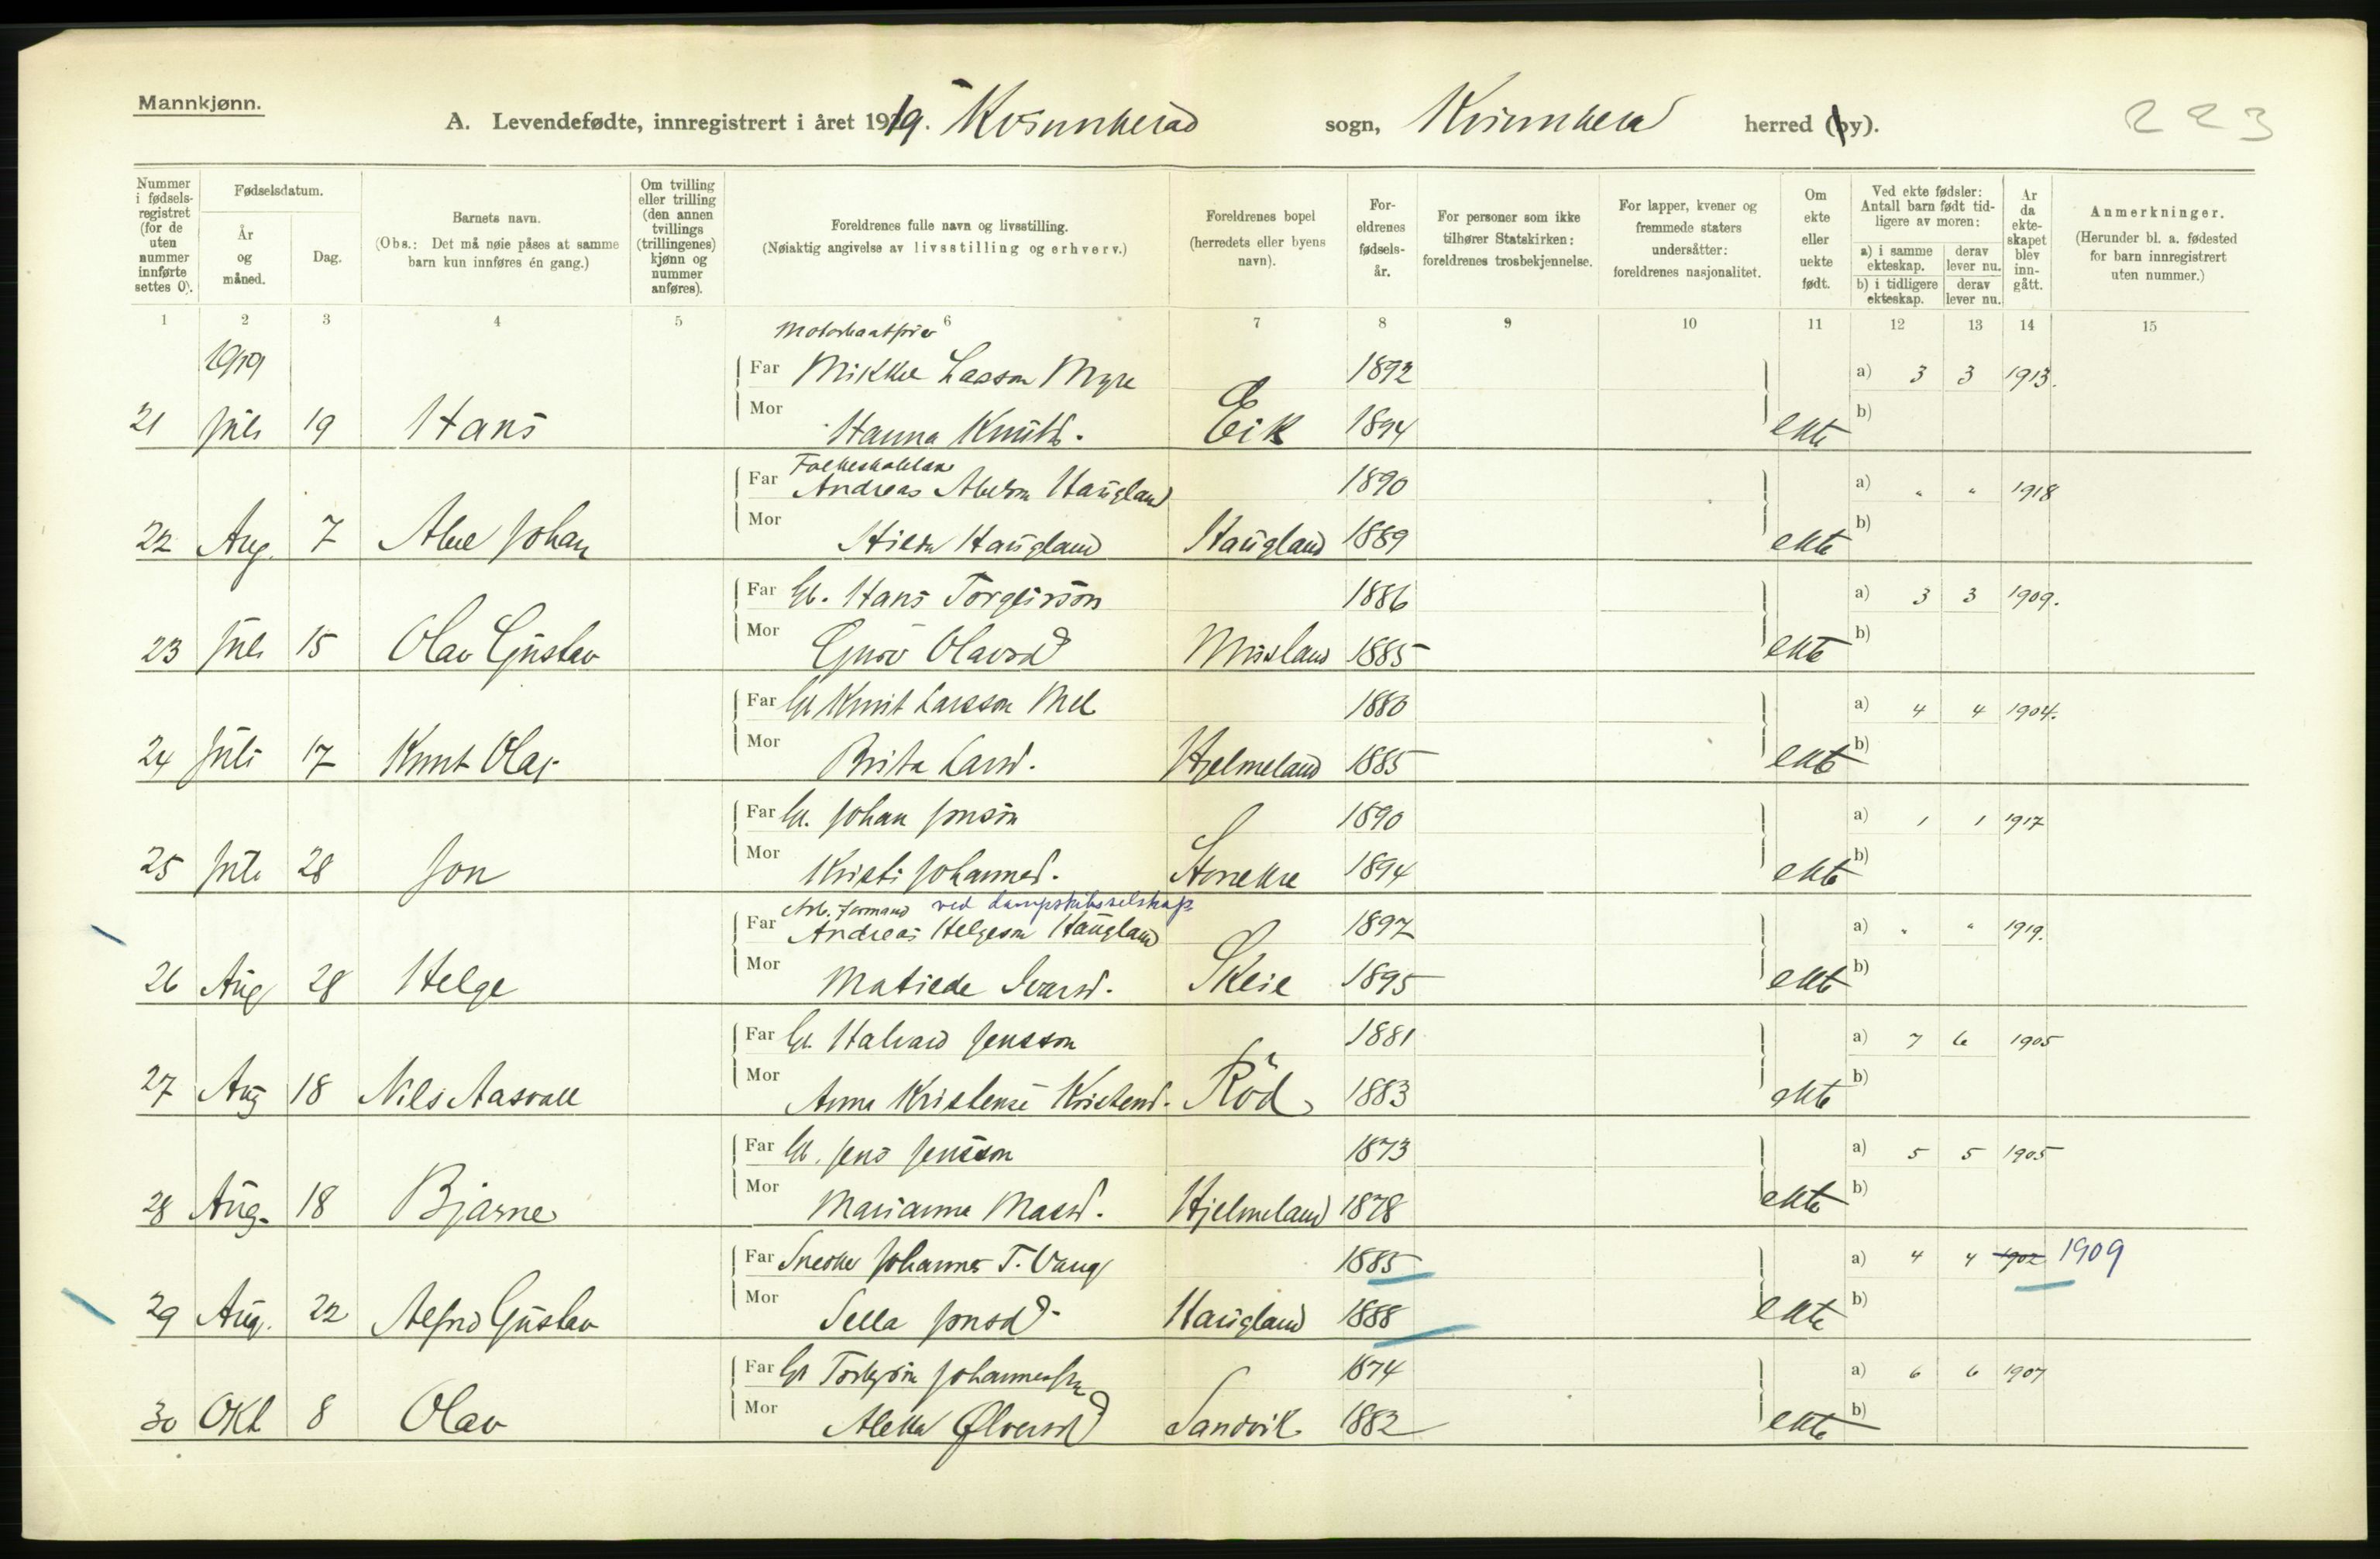 Mannkjønn.
A. Levendefødte, innregistrert i året 1919. Kvinnherad sogn, Kvinnherad herred (by).
223
Nummer i fødsels-registret (for de uten nummer innførte settes 0).
Fødselsdatum.
År og måned.
Dag.
Barnets navn.
(Obs.: Det må nøie påses at samme barn kun innføres én gang.)
Om tvilling eller trilling (den annen tvillings (trillingenes) kjønn og nummer anføres).
Foreldrenes fulle navn og livsstilling.
(Nøiaktig angivelse av livsstilling og erhverv.)
Foreldrenes bopel (herredets eller byens navn).
For-eldrenes fødsels-år.
For personer som ikke tilhører Statskirken: foreldrenes trosbekjennelse.
For lapper, kvener og fremmede staters undersåtter: foreldrenes nasjonalitet.
Om ekte eller uekte født.
Ved ekte fødsler: Antall barn født tid-ligere av moren:
a) i samme ekteskap.
derav lever nu.
b) i tidligere ekteskap.
derav lever nu.
År da ekte-skapet blev inn-gått.
Anmerkninger.
(Herunder bl. a. fødested for barn innregistrert uten nummer.)
1 2 3 4 5 6 7 8 9 10 11 12 13 14 15
1919
Far Mikkel Larsson Myre 1892 a) 3 3 1913.
21 Juli 19 Hans Mor Hanna Knutsd. Eik 1894 ekte b)
Far Andreas Haugland 1890 a) " " 1918
22 Aug. 7 Johan Mor Hilda Haugland Haugland 1889 ekte b)
Far Gb. Hans Torgeirson 1886 a) 3 3 1909.
23 Juli 15 Olav Gustav Mor Guro Olavsd 1885 ekte b)
Far Gb Knut Larsson Mel 1880 a) 4 4 1904.
24 Juli 17 Knut Olaf Mor Brita Larsd. Hjelmeland 1885 ekte b)
Far Gb. Johan Jonson 1890 a) 1 1 1917
25 Juli 28 Jon Mor Kristi Johannesd. 1894 ekte b)
Arb. formand ved dampskibsselskap
Far Andreas Helgeson Haugland 1897 a) " " 1919.
26 Aug 28 Helge Mor Matilde Ivarsd. Skeie 1895 ekte b)
Far Gb. Halvard Jensson 1881 a) 7 6 1905
27 Aug 18 Nils Aasvall Mor Anna Kristensd. Röd 1883 ekte b)
Far Gb. Jens Jensson 1873 a) 5 5 1905
28 Aug. 18 Bjarne Mor Marianna Massd. Hjelmeland 1878 ekte b)
Far Snedker Johannes T. Vaag 1885 a) 4 4 1902 1909
29 Aug. 22 Alfred Gustav Mor Sella Jonsd. Haugland 1888 ekte b)
Far Gb Torbjörn Johannesson 1874 a) 6 6 1907
30 Okt 8 Olav Mor Aletta Ølversd Sandvik 1882 ekte b)